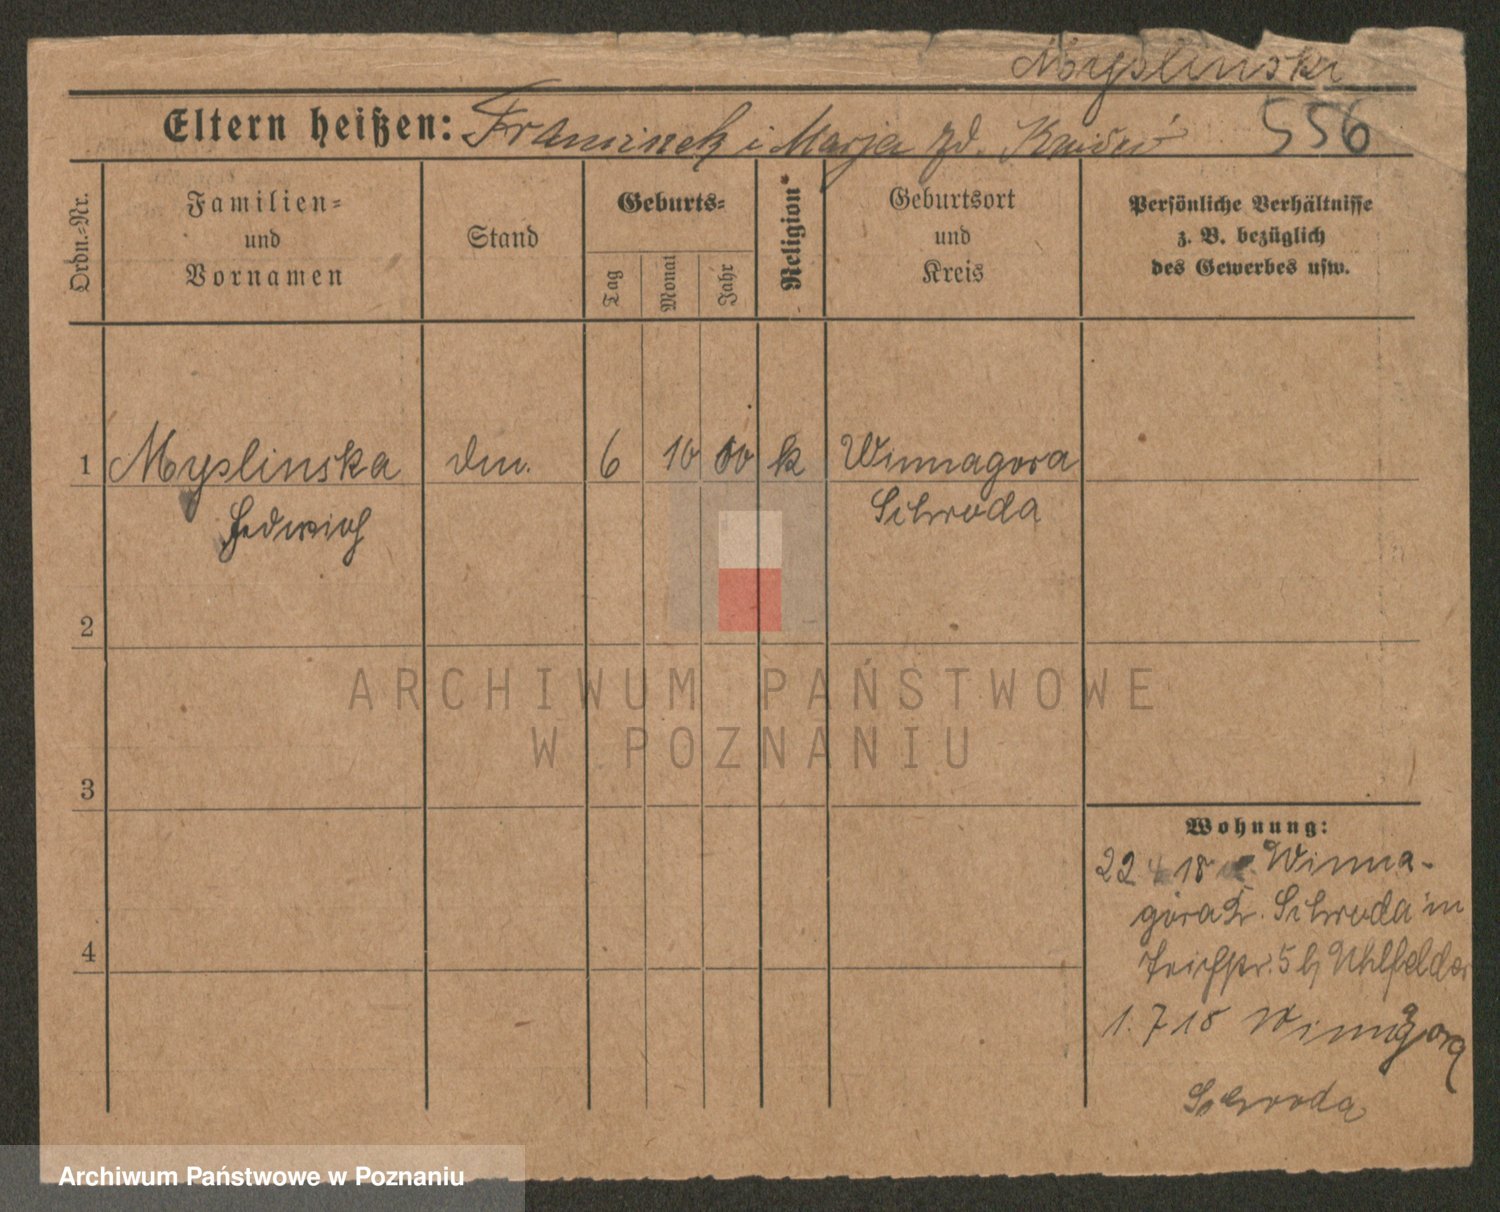 Myslinski
Eltern heißen: Franciszek i Marja zd.
556
Ordn.-Nr.
Familien-
und
Vornamen
Stand
Geburts-
Tag
Monat
Jahr
Religion
Geburtsort
und
Kreis
Persönliche Verhältnisse
z. B. bezüglich
des Gewerbes usw.
1 Myslinska dm. 6 10 00 k Winnagora
Hedwig Schroda
2
ARCHIWUM PAŃSTWOWE
W POZNANIU
3
Wohnung:
22 4 18 Winna-
góra Kr. Schroda in
Teichstr. 5 b/ Uhlfelder
4
1. 7 18 Winnagora
Schroda
Archiwum Państwowe w Poznaniu